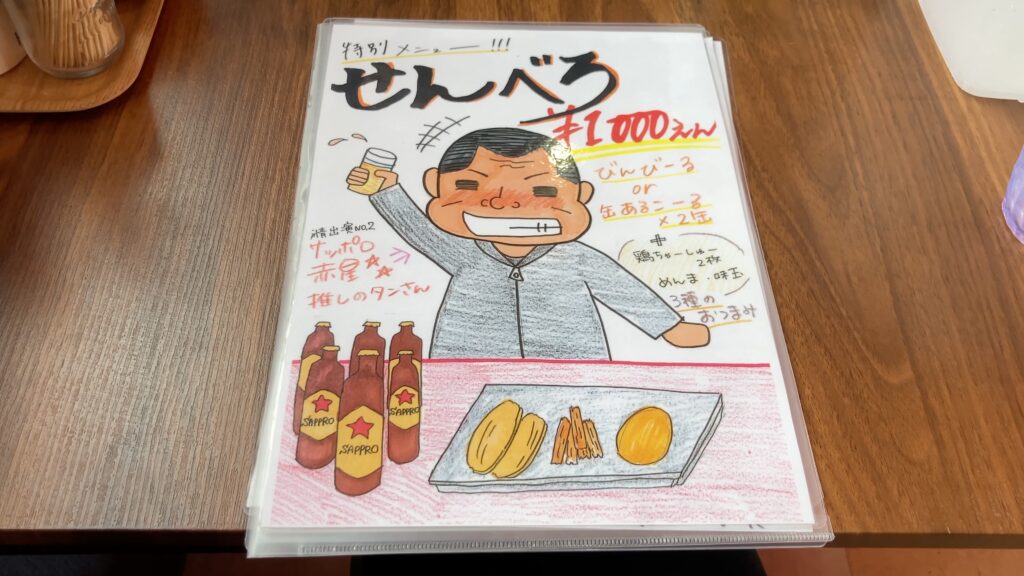 特別メニュー!!!
せんべろ
¥1000えん
びんびーる
or
缶あるこーる
×2缶
+
鶏ちゃーしゅー
2枚
めんま・味玉
3種の
おつまみ
出演No.2
サッポロ
赤星☆☆
推しのタンさん
SAPPRO
SAPPRO
SAPPRO